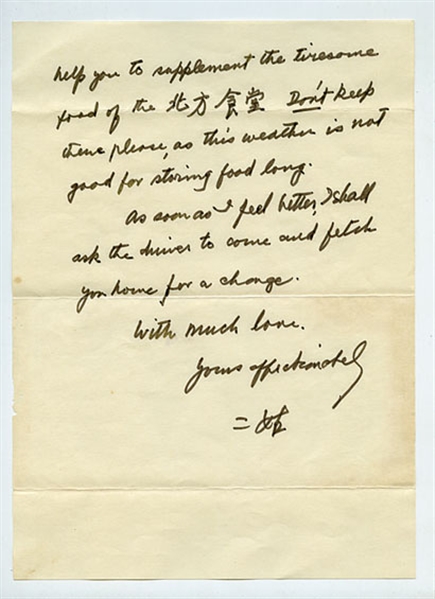 help you to supplement the tiresome
food of the 北方食堂 Don't keep
them please, as this weather is not
good for storing food long.
As soon as I feel better, I shall
ask the driver to come and fetch
you home for a change.
With much love.
Yours affectionately
二姑